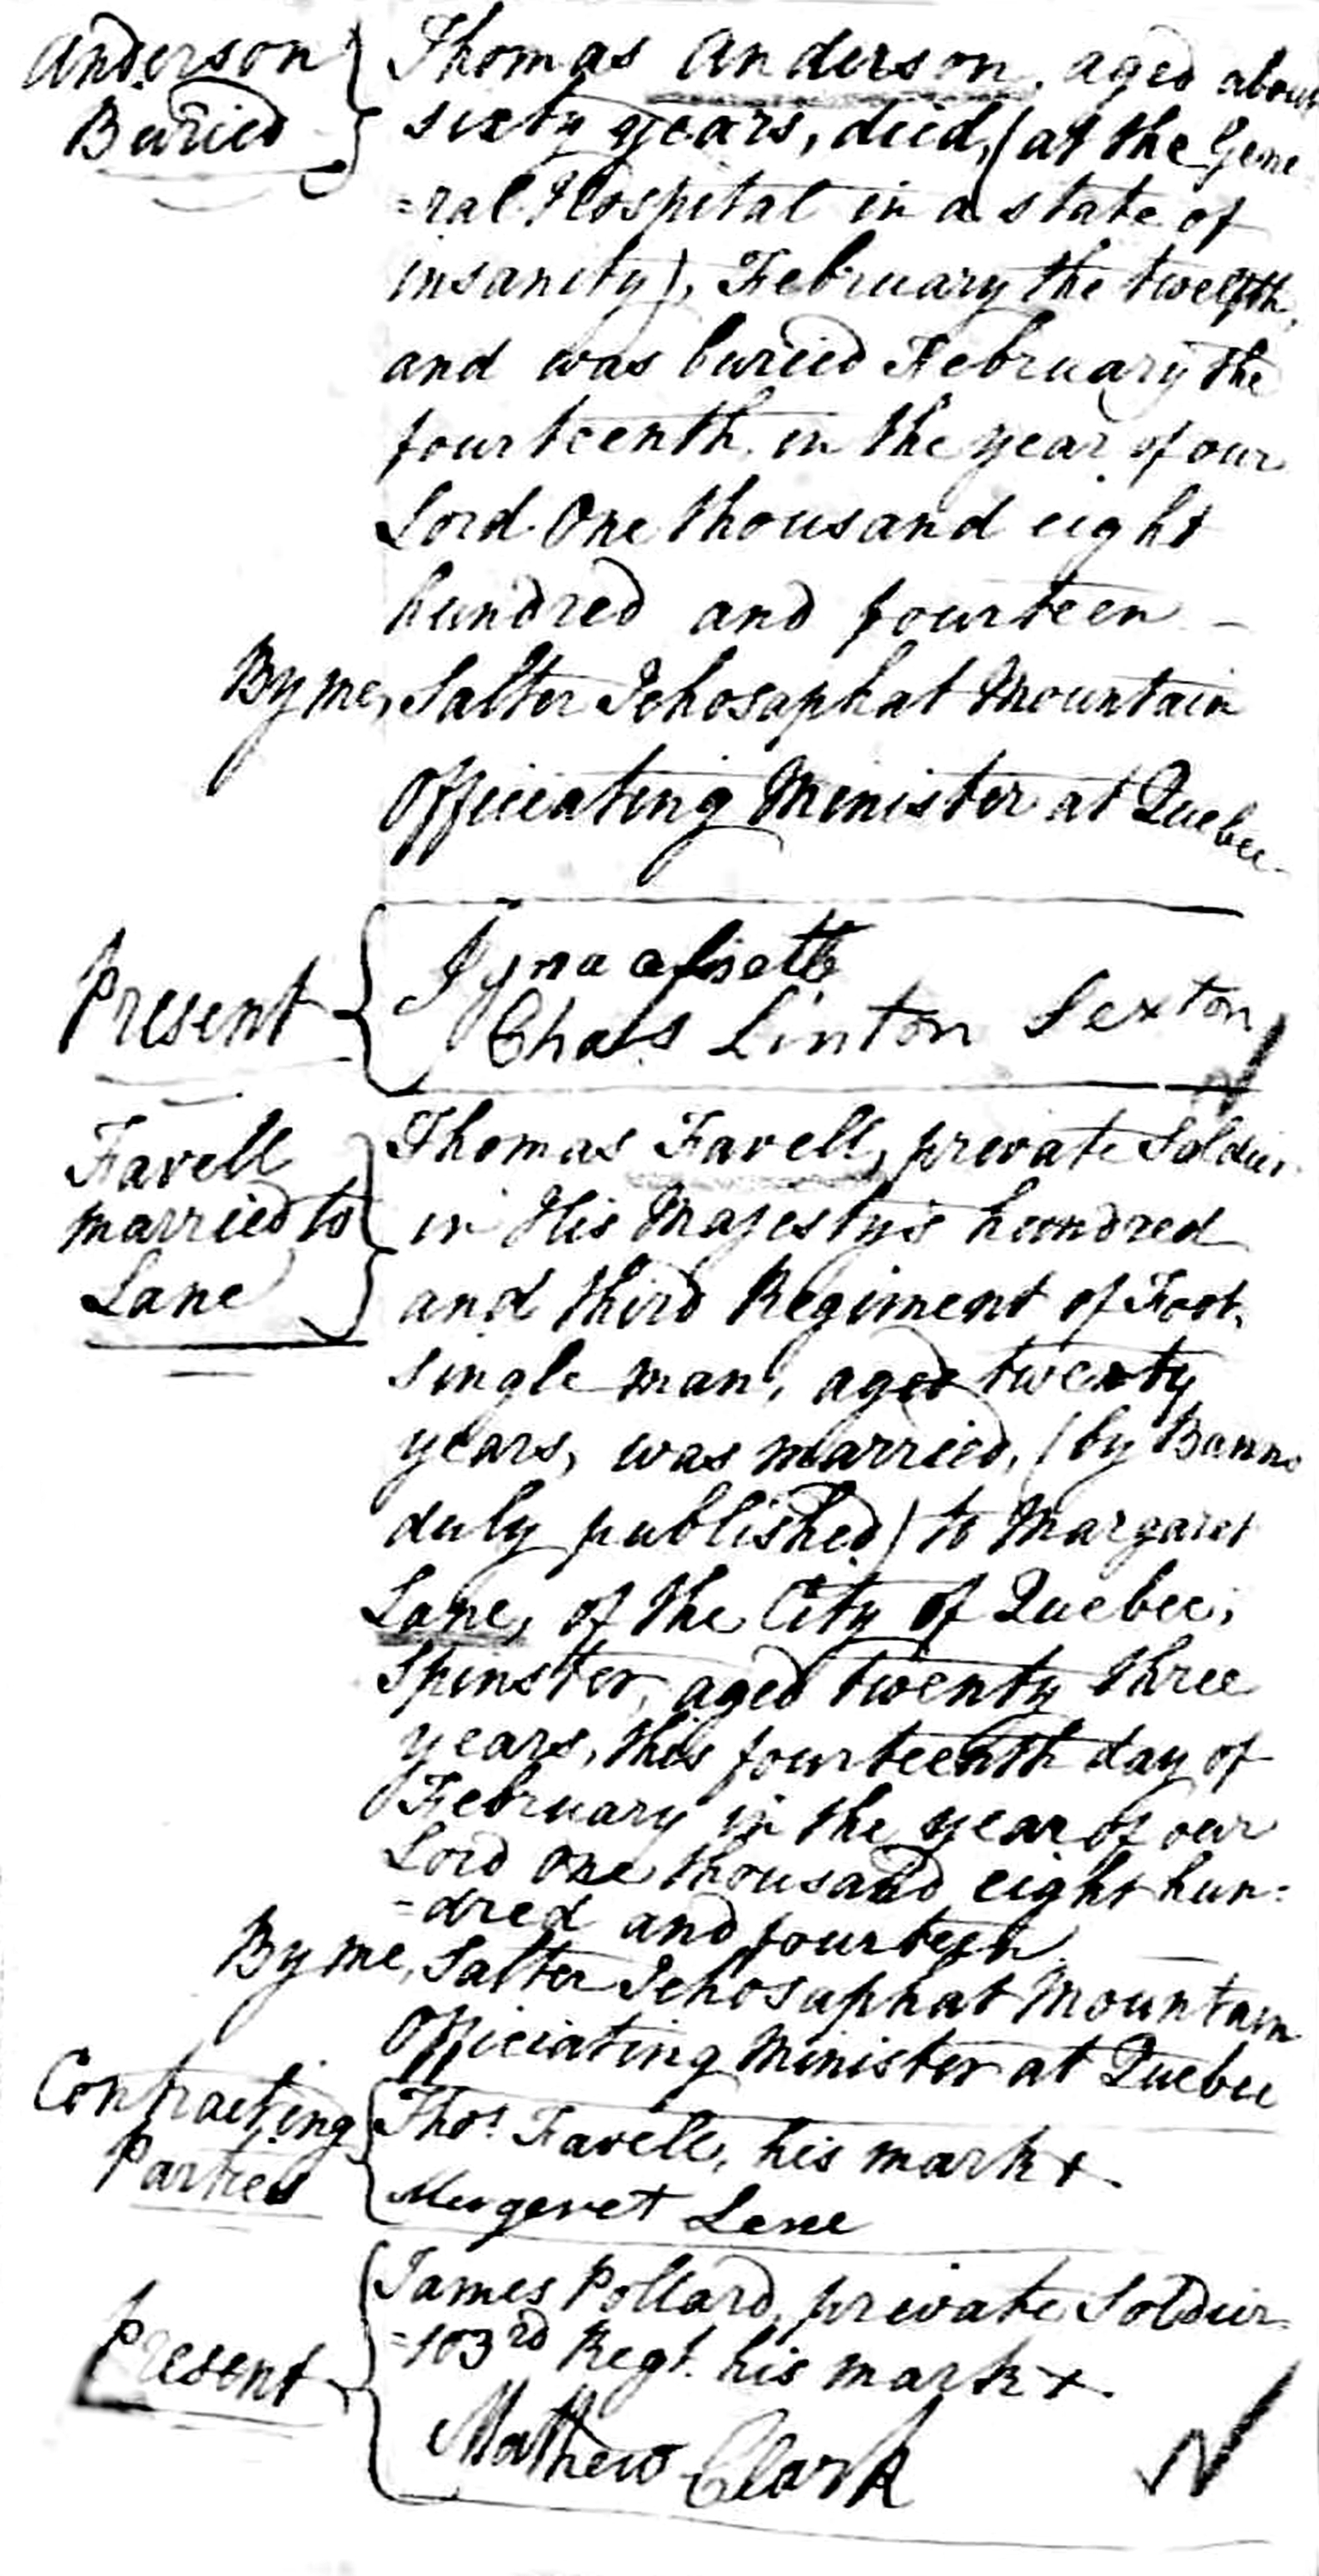 Anderson
Buried
Thomas Anderson, aged about
sixty years, died, (at the Gene
=ral Hospital in a state of
insanity), February the twelfth,
and was buried February the
fourteenth, in the year of our
Lord One thousand eight
hundred and fourteen –
By me, Salter Jehosaphat Mountain
Officiating Minister at Quebec
Present
Chas Linton Sexton
Favell
married to
Lane
Thomas Favell, private Soldier
in His Majesty's hundred
and third Regiment of Foot,
single man, aged twenty
years, was married, (by Banns
duly published) to Margaret
Lane, of the City of Quebec,
Spinster, aged twenty three
years, this fourteenth day of
February in the year of our
Lord one thousand eight hun=
=dred and fourteen
By me, Salter Jehosaphat Mountain
Officiating Minister at Quebec
Contracting
Parties
Thos Favell, his mark +
Mergeret Lene
Present
James Pollard, private Soldier
=103rd Regt. his mark +
Mathew Clark